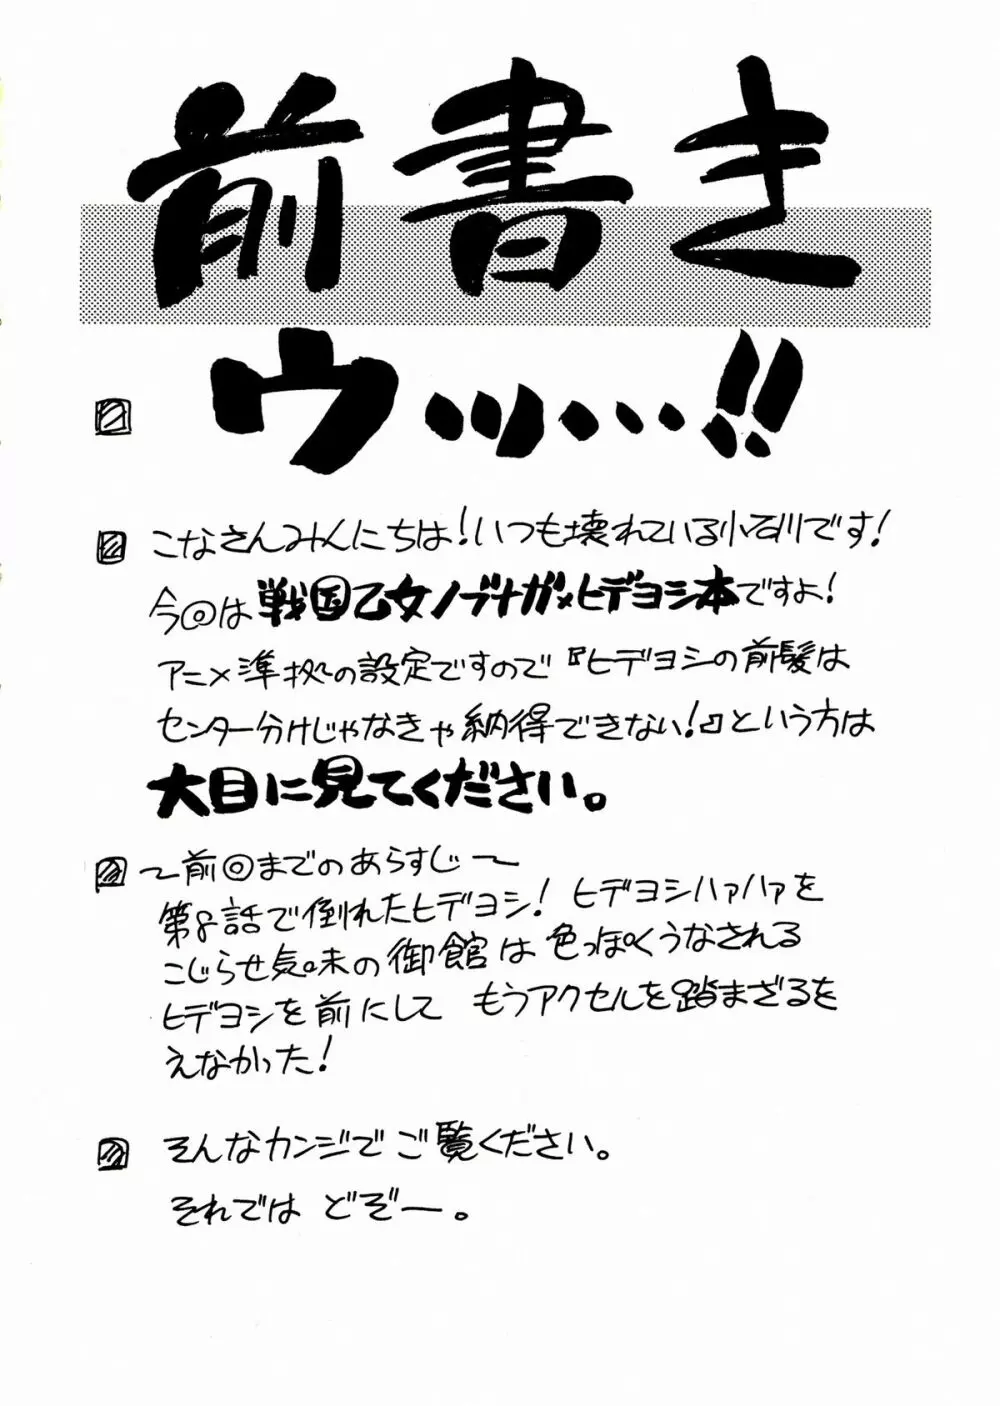 前書き
ウッ…!!
こなさんみんにちは!いつも壊れている小石川です!
今回は戦国乙女ノブナガ×ヒデヨシ本ですよ!
アニメ準拠の設定ですので『ヒデヨシの前髪は
センター分けじゃなきゃ納得できない!』という方は
大目に見てください。
〜前回までのあらすじ〜
第8話で倒れたヒデヨシ! ヒデヨシハァハァを
こじらせ気味の御館は色っぽくうなされる
ヒデヨシを前にして もうアクセルを踏まざるを
えなかった!
そんなカンジでご覧ください。
それでは どぞー。